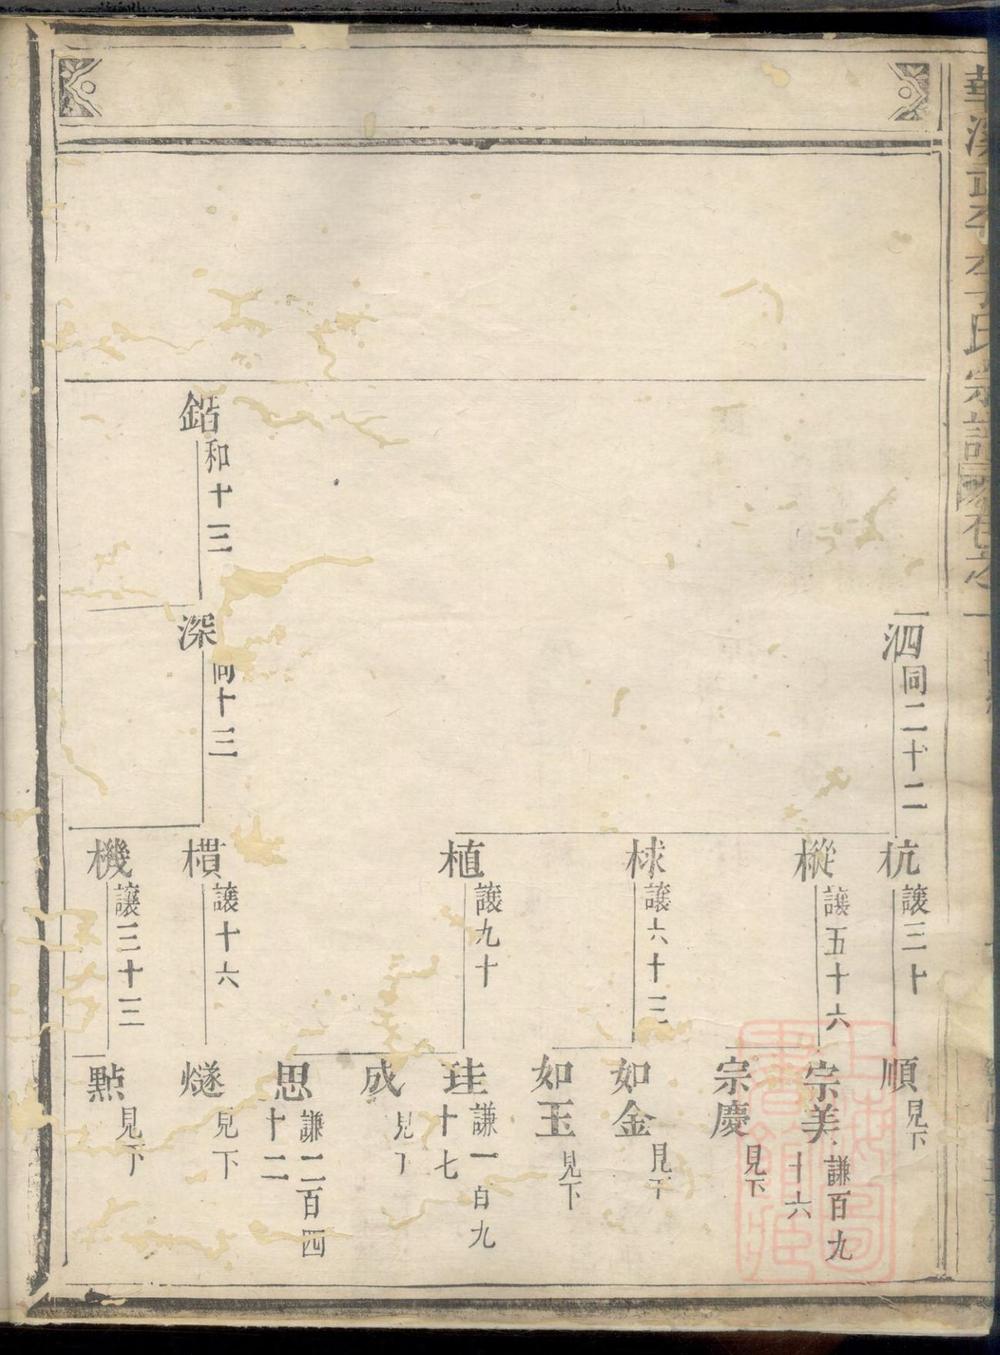 李氏宗譜
卷之一
泗同二十二
杭讓三十
順見下
樅讓五十六
宗美謙百九
十六
宗慶見下
梂讓六十三
如金見下
如玉見下
植讓九十
珪謙一百九
十七
成見下
思謙二百四
十二
鍇和十三
深同十三
橫讓十六
燧見下
機讓三十三
點見下